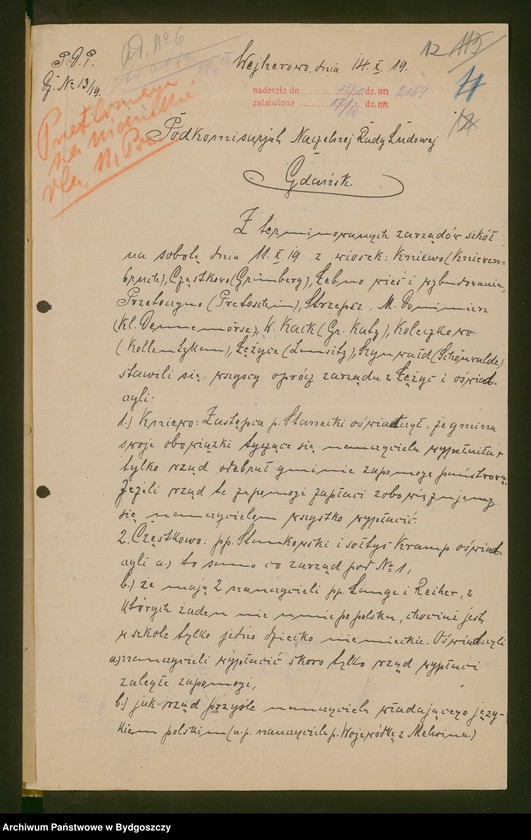 P. P. P.
Gd. No 6
Wejherowo, dnia 14. X. 19.
12
Lj. No 13/19.
nadeszło dn. dz. nr. 2169
załatwione 17/10 dz. nr.
Podkomisarjat Naczelnej Rady Ludowej
Gdańsk.
Z terminowanych zarządów szkół
na sobotę dnia 11. X. 19 z wiosek: Kniewo (
), Cząstkowo (Grünberg), Łebno wieś i wybudowania,
Przetoczyno (Pretoschin), Strzepcz, M. Donimierz
(Kl. Dennemörse), W. Kack (Gr. Katz), Koleczkowo
(Kollentzkau), Łężyce (Lensitz), Szynwald (Schönwalde)
stawili się wszyscy oprócz zarządu z Łężyc i oświad-
czyli:
1.) Kniewo: Zastępca p. Stanecki oświadczył, że gmina
swoje obowiązki tyczące się nauczyciela wypełniła,
tylko rząd odebrał gminie zapomogę państwową.
Jeżeli rząd te zapomogi zapłaci zobowięzujemy
się nauczycielom wszystko wypłacić.
2. Cząstkowo: pp. Slumkowski i sołtys Kramp oświad-
czyli a.) to samo co zarząd pod No 1,
b.) że mają 2 nauczycieli pp. Lange i Reiher, z
których żaden nie umie po polsku, chociaż jest
w szkole tylko jedno dziecko niemieckie. Oświadczyli
a) nauczycieli wypłacić skoro tylko rząd wypłaci
zaległe zapomogi,
b.) jak rząd przyśle nauczyciela władającego języ-
kiem polskim (n.p. nauczyciela p. Wojewódkę z Melwina.)
Archiwum Państwowe w Bydgoszczy